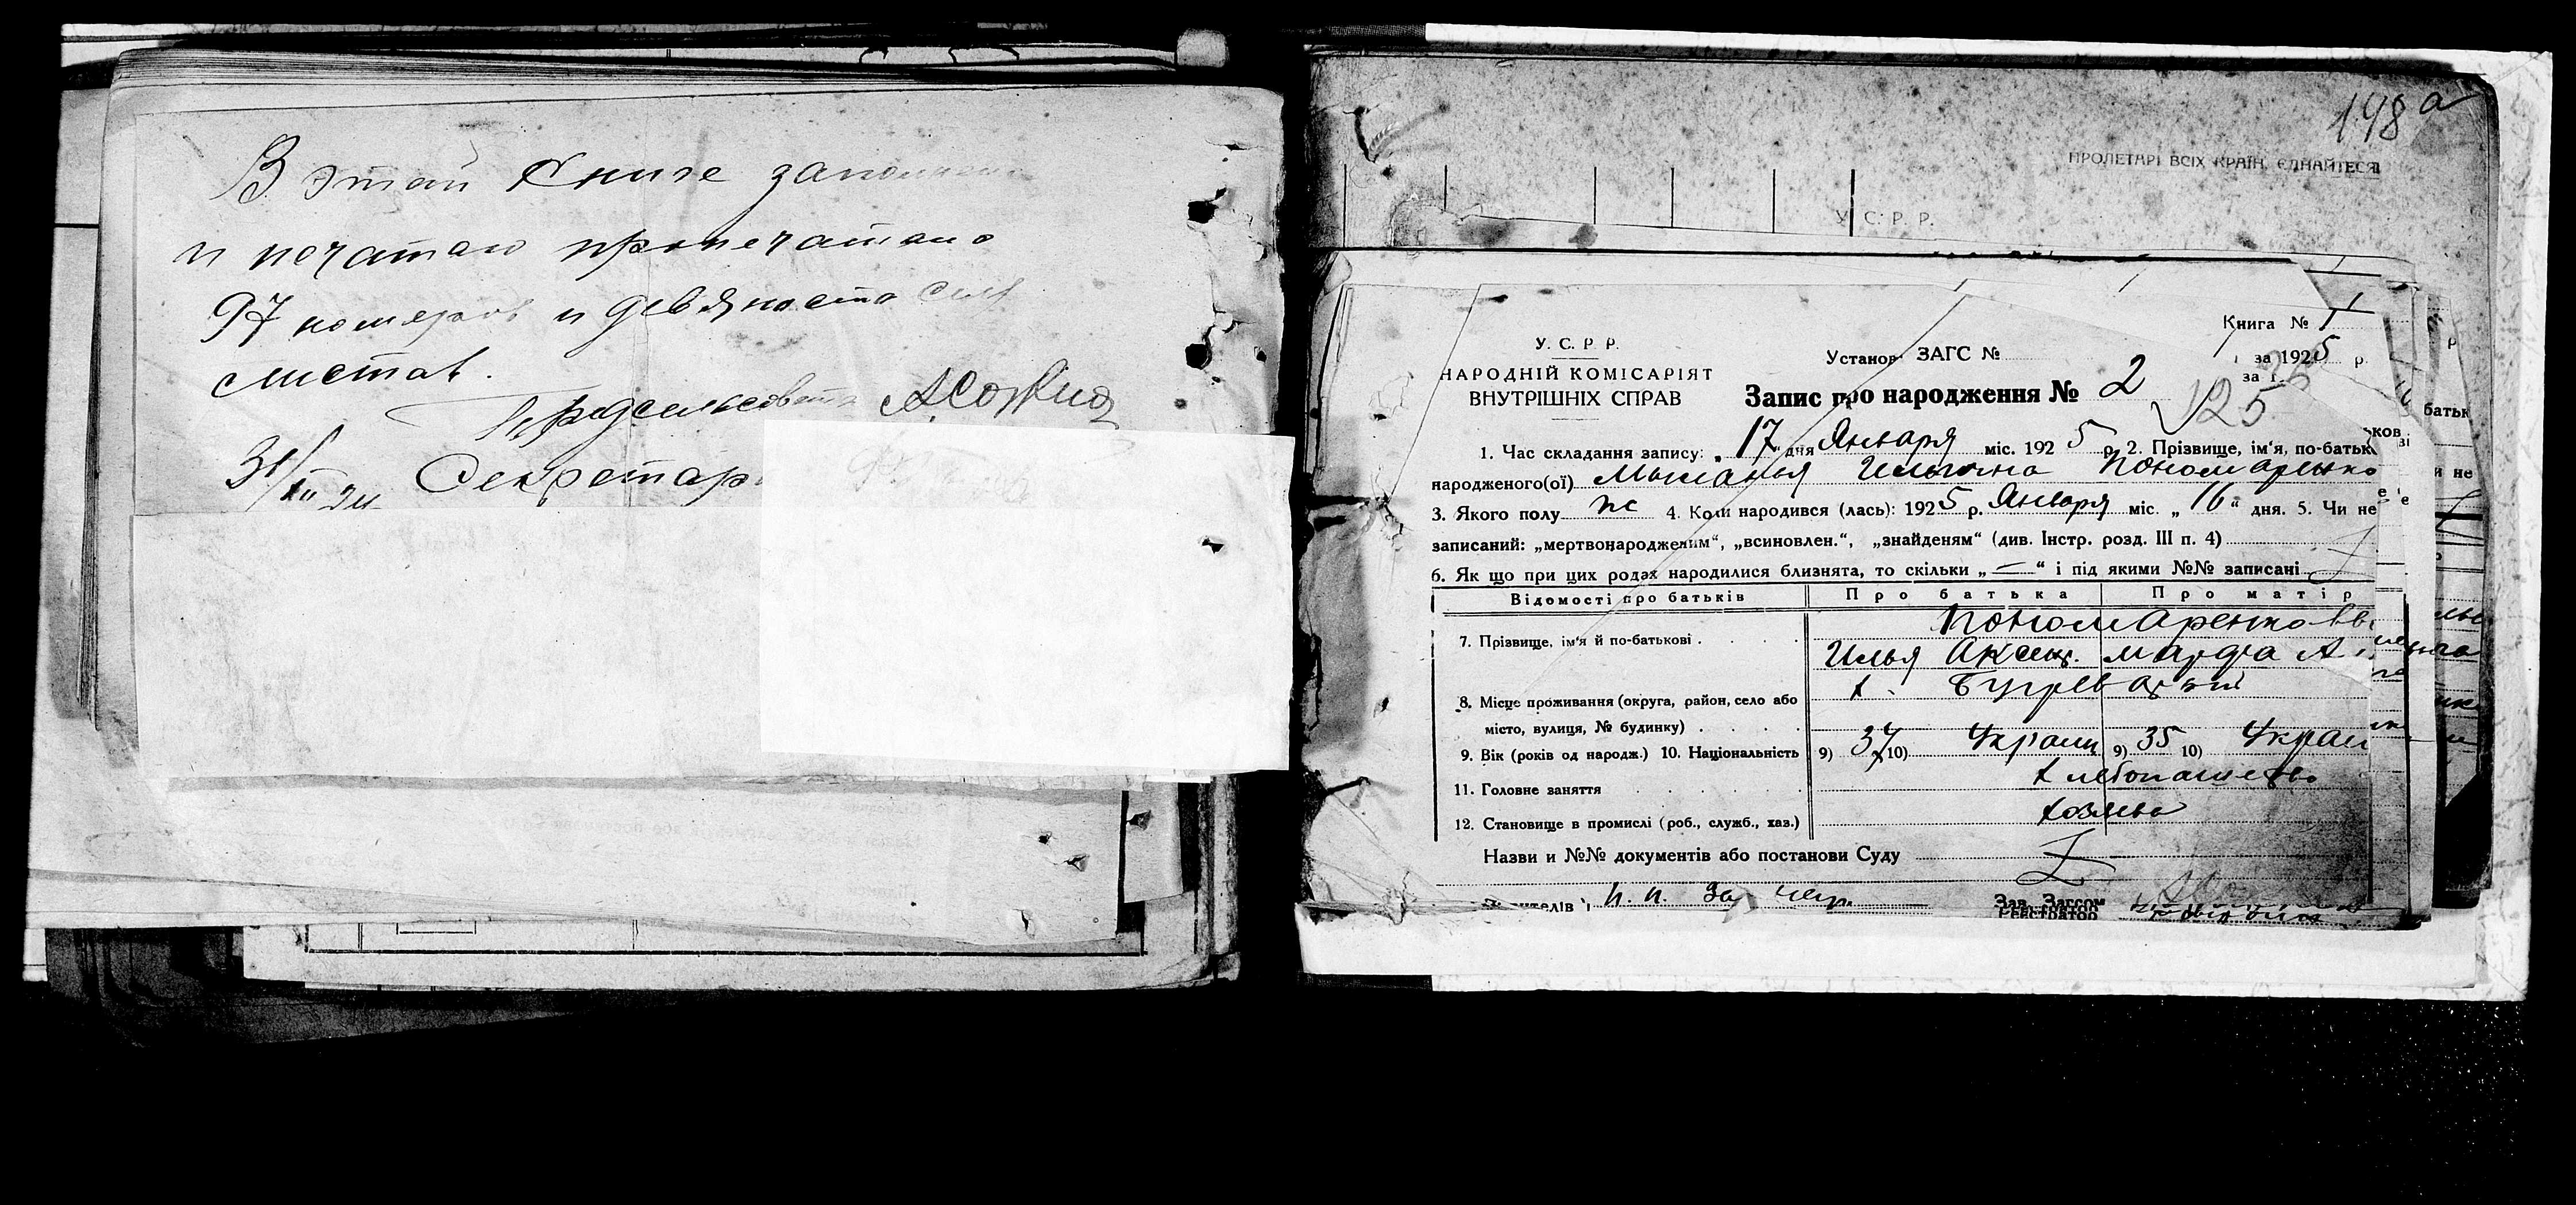 В этой Книге
и печатаю пропечатано
97 номеров и девяносто сем
листов.
Предсельсовета
31/XII 24 Секретарь
148 а
ПРОЛЕТАРІ ВСІХ КРАЇН, ЄДНАЙТЕСЯ
У. С. Р. Р.
Книга № 1
У. С. Р. Р.
Установ ЗАГС №
за 1925 р.
НАРОДНІЙ КОМІСАРІЯТ
ВНУТРІШНІХ СПРАВ
Запис про народження № 2
125
1. Час складання запису: „17 дня Января міс. 1925 р. 2. Прізвище, ім'я, по-батьк
народженого(ої) Ильична Пономаренко
3. Якого полу ж 4. Коли народився (лась): 1925 р. Января міс. „16“ дня. 5. Чи не
записаний: „мертвонародженим“, „всиновлен.“, „знайденям“ (див. Інстр. розд. III п. 4)
6. Як що при цих родах народилися близнята, то скільки „—“ і під якими №№ записані
Відомості про батьків Про батька Про матір
Пономаренковы
7. Прізвище, ім'я й по-батькові
Илья Аксен. Марфа А
8. Місце проживання (округа, район, село або
місто, вулиця, № будинку)
9. Вік (років од народж.) 10. Національність 9) 37 10) Украин 9) 35 10) Украи
11. Головне заняття хлебопашество
12. Становище в промислі (роб., служб., хаз.) хозяева
Назви и №№ документів або постанови Суду
Зав. Загсом
Реєстратор